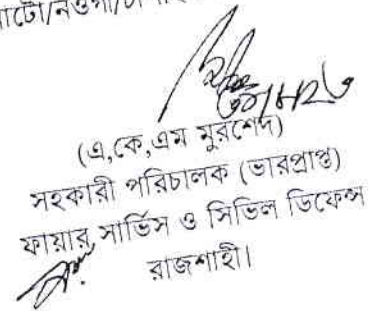 (এ,কে,এম মুরশেদ)
সহকারী পরিচালক (ভারপ্রাপ্ত)
ফায়ার সার্ভিস ও সিভিল ডিফেন্স
রাজশাহী।